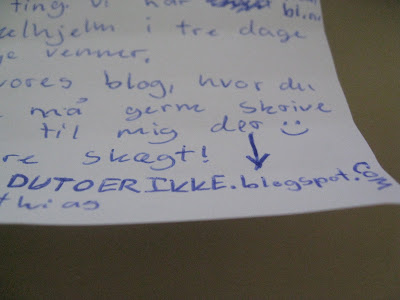 ting. Vi har bl.a.
elhjelm i tre dage
venner.
vores blog, hvor du
må gerne skrive
til mig der :)
re skægt!
DUTOERIKKE.blogspot.com
thias